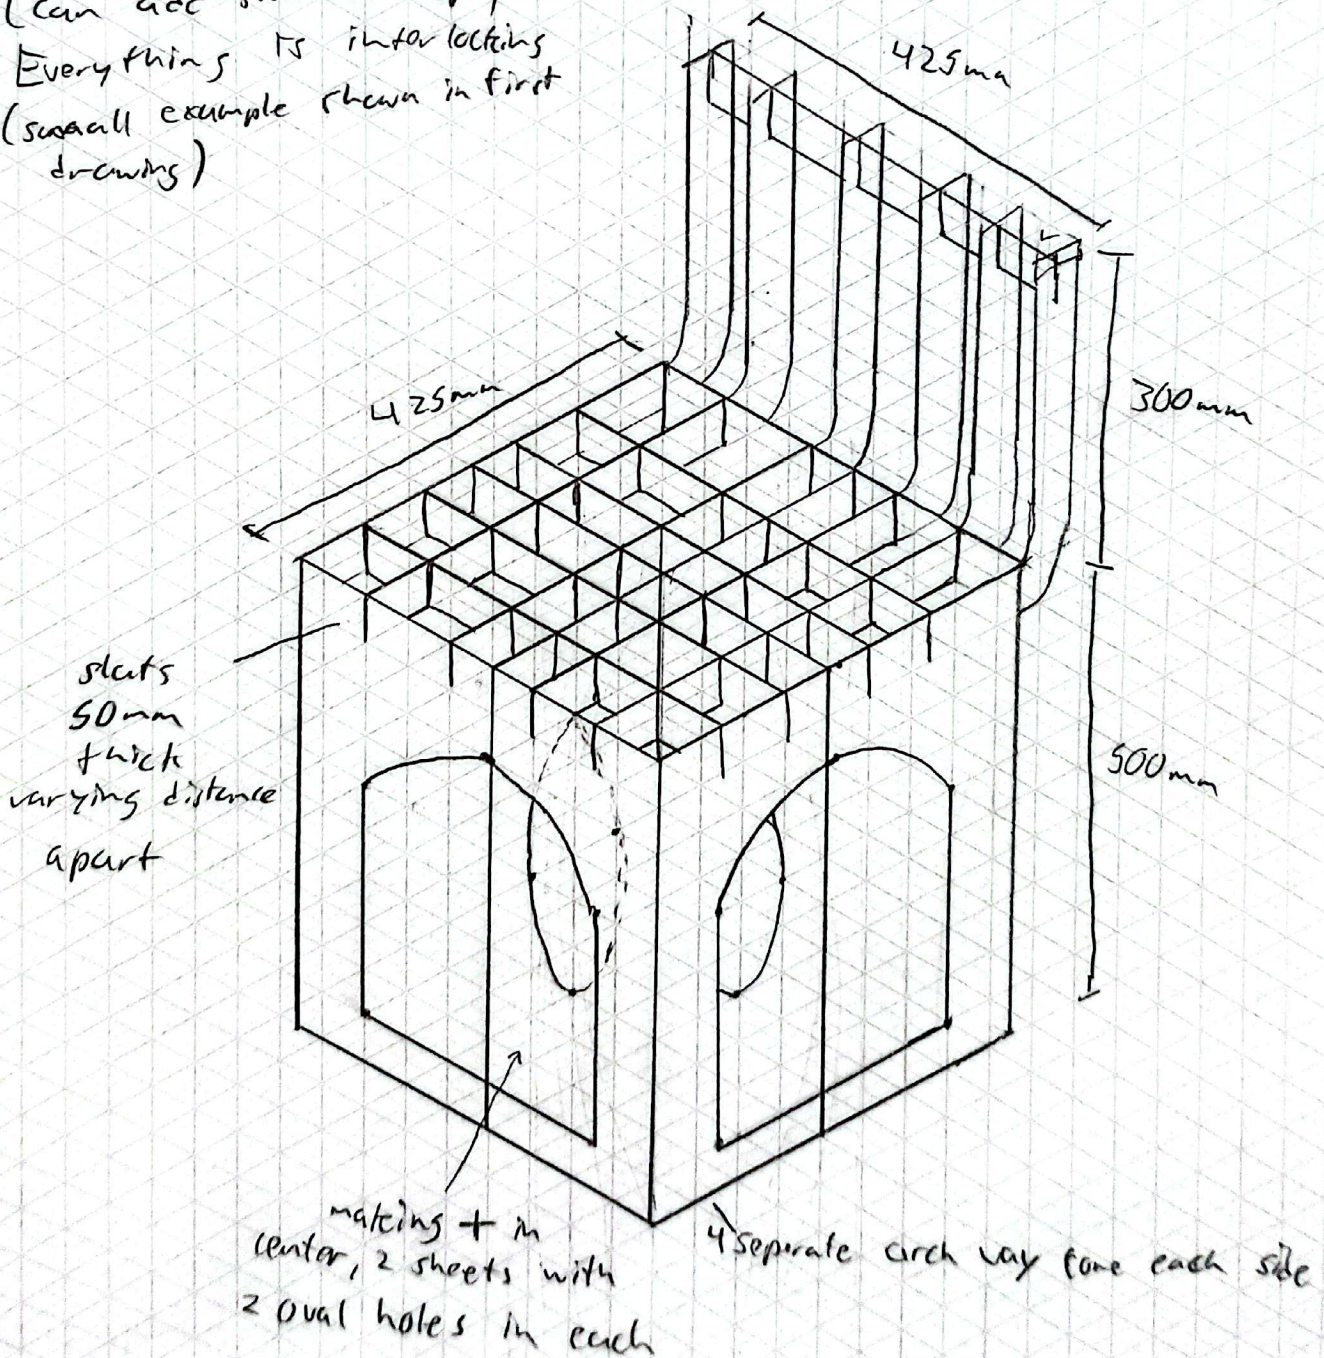 (can
Everything is interlocking
(small example shown in first
drawing)
425mm
425mm
300mm
slats
50mm
thick
varying distance
apart
500mm
making + in
center, 2 sheets with
2 oval holes in each
4 seperate arch way (one each side